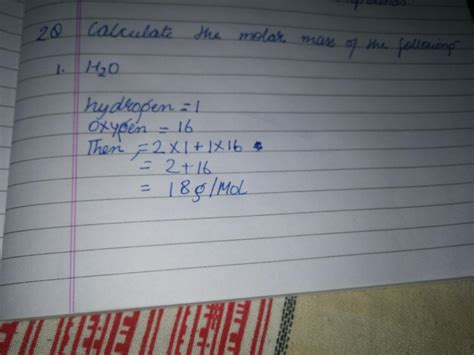 2Q Calculate the molar mass of the following
1. H₂O
hydrogen = 1
oxygen = 16
Then = 2×1+1×16
= 2+16
= 18g/Mol